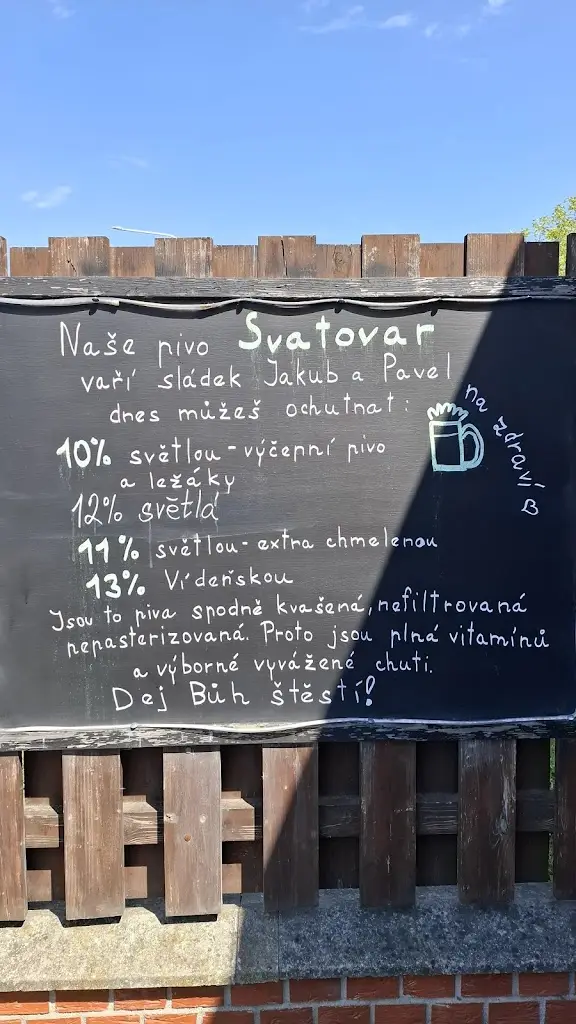 Naše pivo Svatovar
vaří sládek Jakub a Pavel
dnes můžeš ochutnat:
na zdraví
10% světlou - výčepní pivo
a ležáky
12% světlá
11% světlou - extra chmelenou
13% Vídeňskou
Jsou to piva spodně kvašená, nefiltrovaná
nepasterizovaná. Proto jsou plná vitamínů
a výborné vyvážené chuti.
Dej Bůh štěstí!